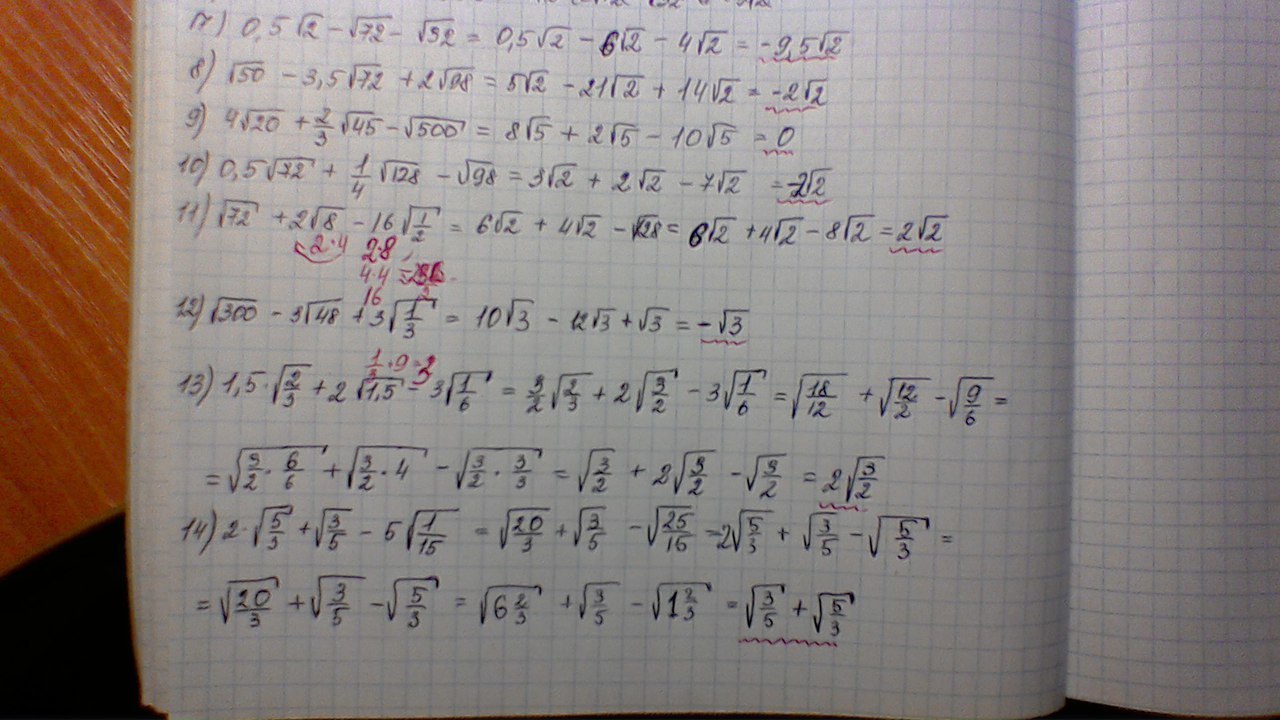 7) 0,5√2 - √72 - √32 = 0,5√2 - 6√2 - 4√2 = -9,5√2
8) √50 - 3,5√72 + 2√98 = 5√2 - 21√2 + 14√2 = -2√2
9) 4√20 + 2/3√45 - √500 = 8√5 + 2√5 - 10√5 = 0
10) 0,5√72 + 1/4√128 - √98 = 3√2 + 2√2 - 7√2 = -2√2
11) √72 + 2√8 - 16√(1/2) = 6√2 + 4√2 - √128 = 6√2 + 4√2 - 8√2 = 2√2
2·4 2·8
4·4
16
12) √300 - 3√48 + 3√(1/3) = 10√3 - 12√3 + √3 = -√3
1/3·9=3
13) 1,5·√(2/3) + 2√1,5 - 3√(1/6) = 3/2√(2/3) + 2√(3/2) - 3√(1/6) = √(18/12) + √(12/2) - √(9/6) =
= √(3/2·6/6) + √(3/2·4) - √(3/2·3/3) = √(3/2) + 2√(3/2) - √(3/2) = 2√(3/2)
14) 2·√(5/3) + √(3/5) - 5√(1/15) = √(20/3) + √(3/5) - √(25/15) = 2√(5/3) + √(3/5) - √(5/3) =
= √(20/3) + √(3/5) - √(5/3) = √(6 2/3) + √(3/5) - √(1 2/3) = √(3/5) + √(5/3)